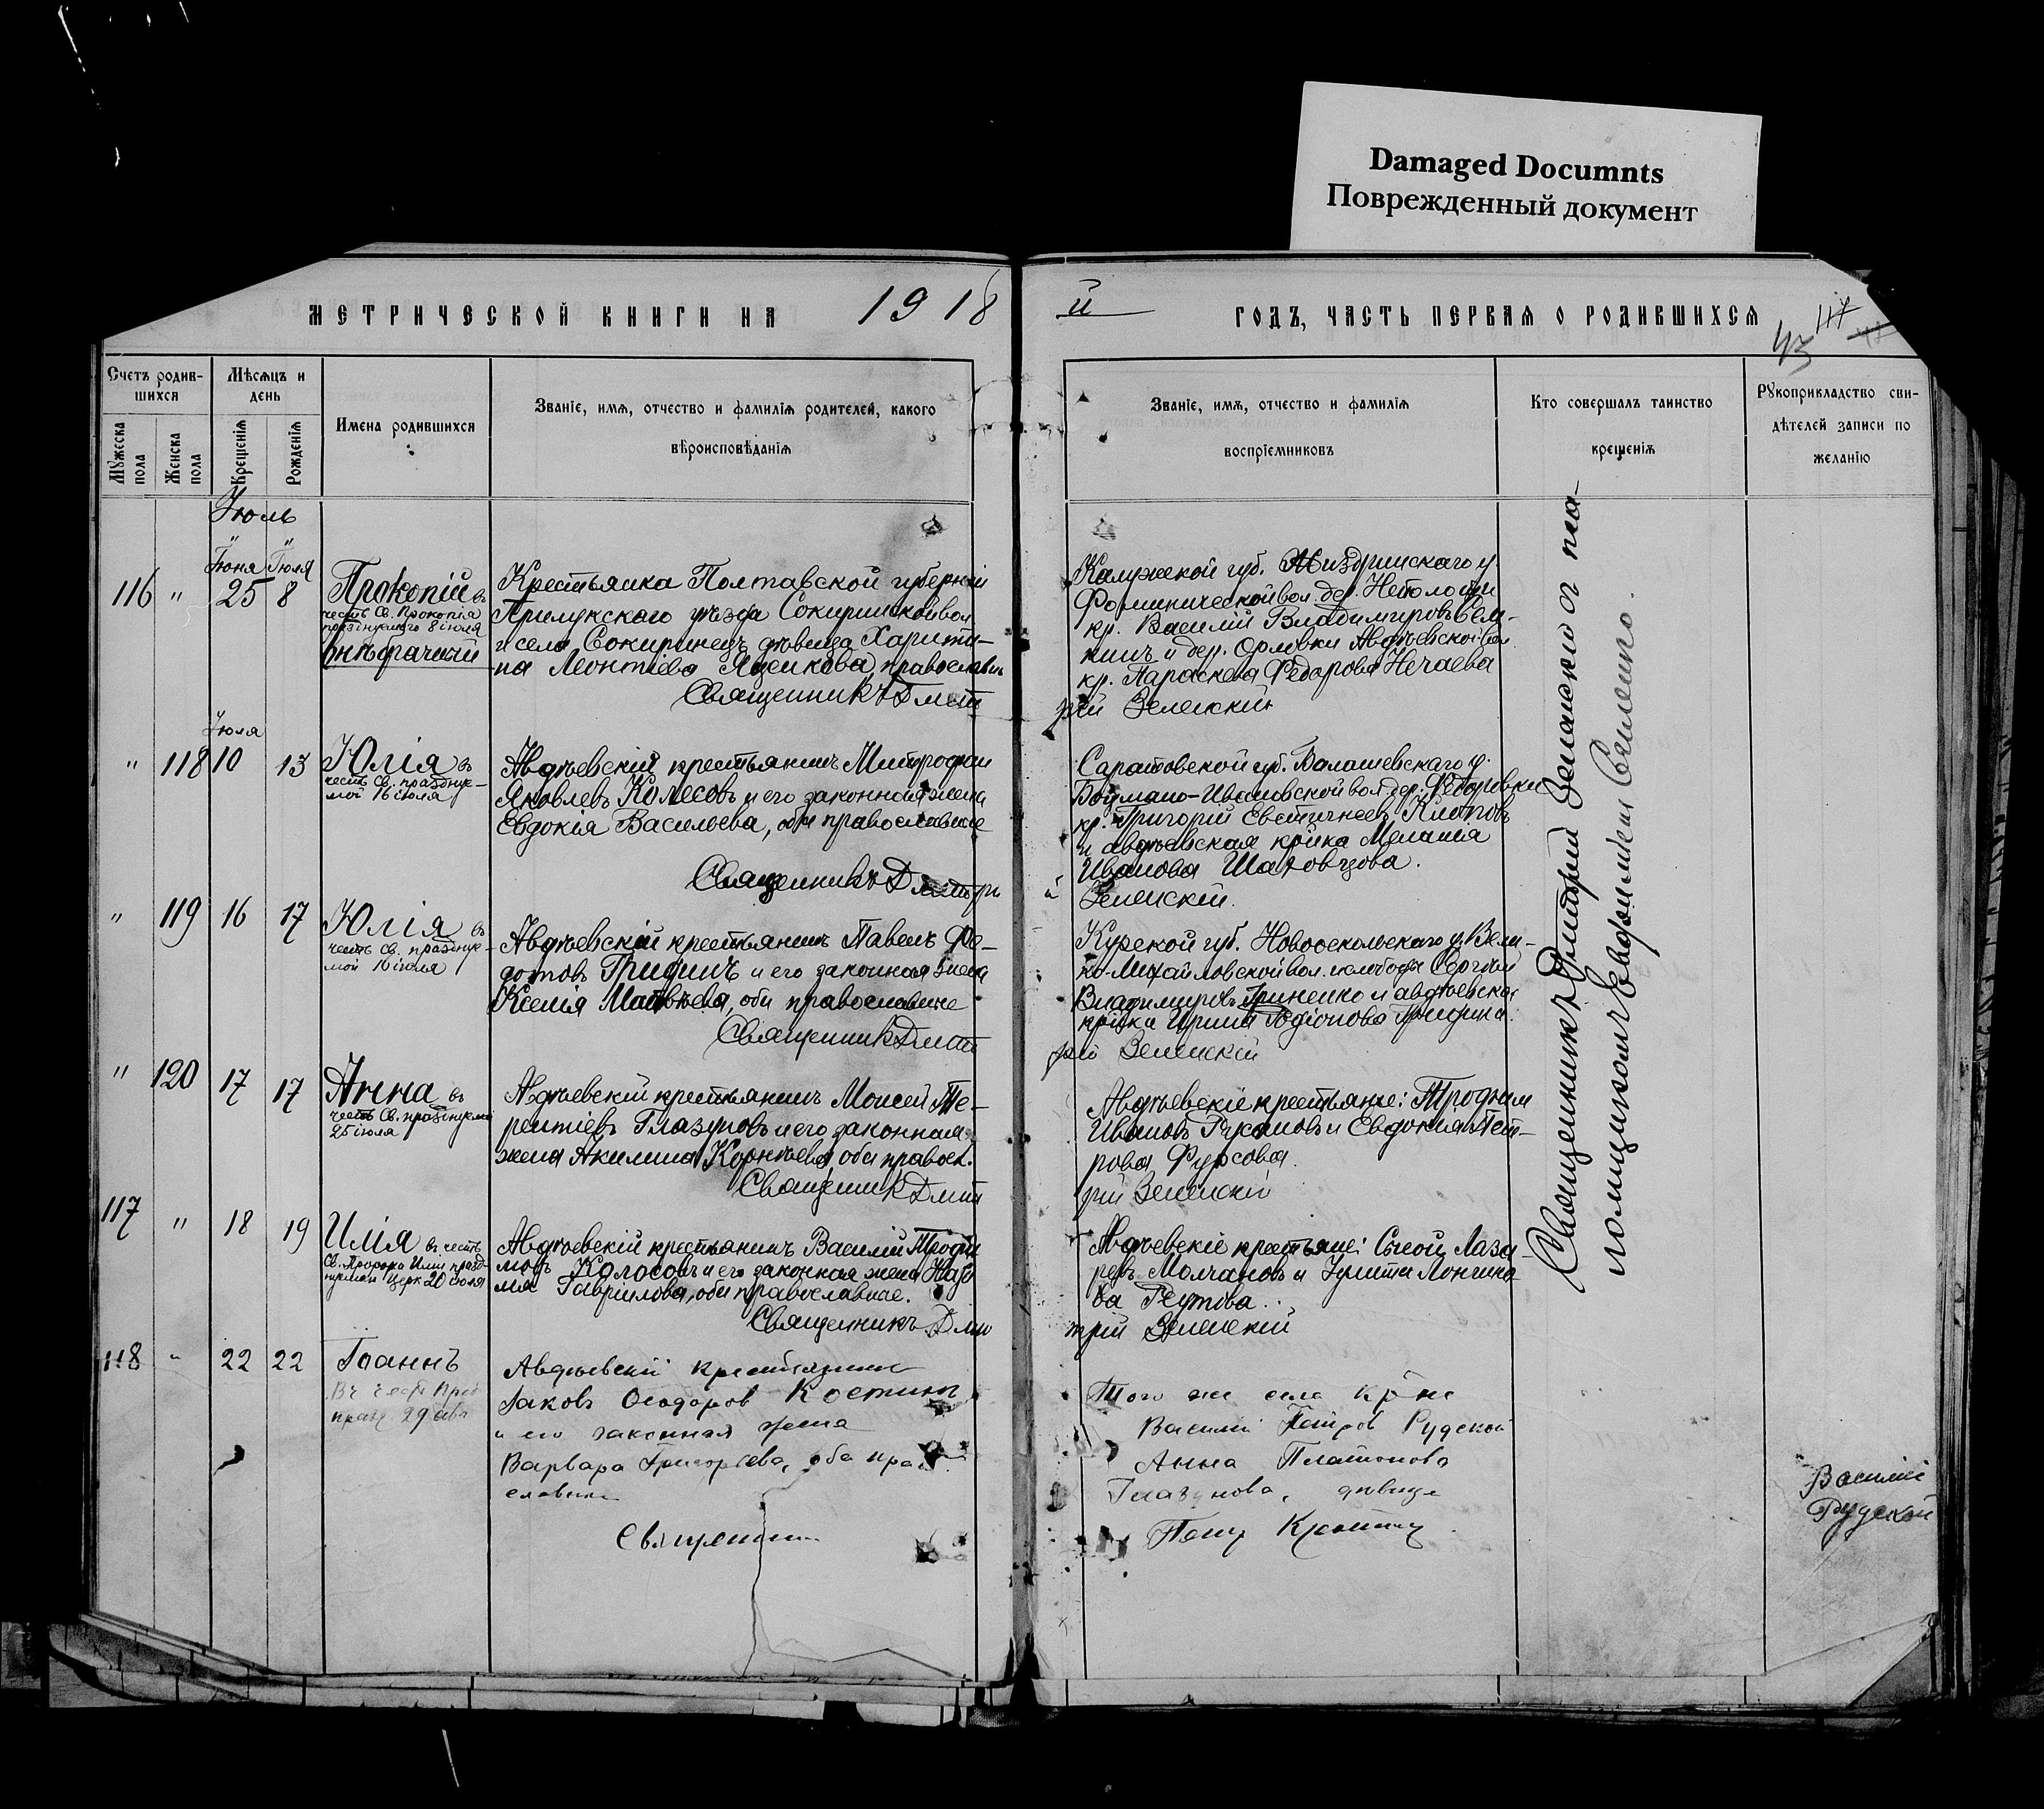 Damaged Documnts
Поврежденный документ
МЕТРИЧЕСКОЙ КНИГИ НА 1918
й ГОДЪ, ЧАСТЬ ПЕРВАЯ О РОДИВШИХСЯ
117
43
Счетъ родив-
шихся
Мѣсяцъ и
день
Мужеска пола
Женска пола
Крещенія
Рожденія
Имена родившихся
Званіе, имя, отчество и фамилія родителей, какого
вѣроисповѣданія
Званіе, имя, отчество и фамилія
воспріемниковъ
Кто совершалъ таинство
крещенія
Рукоприкладство сви-
дѣтелей записи по
желанію
Іюль
Іюня Іюля
116 " 25 8
Прокопій въ
честь Св. Прокопія
празднуемаго 8 іюля
внѣбрачный
Крестьянка Полтавской губерніи
Прилукскаго уѣзда Сокиринской вол
и села Сокиринецъ дѣвица Харити-
на Леонтіева Яценкова, православн
Священникъ Дмит
Калужской губ. Жиздринскаго у.
вол. дер.
кр. Василій Владимировъ
и дер. Орловки Авдѣевской вол
кр. Параскева Федорова Нечаева
рій Зеленскій
Іюля
" 118 10 13
Юлія въ
честь Св. праздуе-
мой 16 іюля
Авдѣевскій крестьянинъ Митрофан
Яковлевъ Колесовъ и его законная жена
Евдокія Васильева, оба православные
Священникъ Дмитрі
Саратовской губ. Балашевскаго у.
Ивановской вол. дер. Федоровки
кр. Григорій Евстигнеевъ Клоповъ
и авдѣевская кр-ка Меланія
Иванова Шаховцова.
й Зеленскій.
" 119 16 17
Юлія въ
честь св. празднуе-
мой 16 іюля
Авдѣевскій крестьянинъ Павелъ Фе-
дотовъ Гридинъ и его законная жена
Ксенія Матвѣева, оба православные
Священникъ Дмит
Курской губ. Новооскольскаго у. Вели-
ко-Михайловской вол. и слободы Сергѣй
Владимировъ Гриненко и авдѣевская
кр-ка Ирина Родіонова Гридина.
рій Зеленскій
" 120 17 17
Анна въ
честь Св. празднуемой
25 іюля
Авдѣевскій крестьянинъ Моисей Те-
рентіевъ Глазуновъ и его законная
жена Акилина Корнѣева оба правосл.
Священникъ Дмит
Авдѣевскіе крестьяне: Трофим
Ивановъ Русановъ и Евдокія Пет-
рова Фурсова.
рій Зеленскій
117 " 18 19
Илія въ честь
Св. Пророка Иліи празд-
нуемаго Церк 20 іюля
Авдѣевскій крестьянинъ Василій Трофи
мовъ Колосовъ и его законная жена
Гавриилова, оба православные.
Священникъ Дми
Авдѣевскіе крестьяне: Сысой Лаза
ревъ Молчановъ и Улита Лонгино
ва Реутова.
трій Зеленскій
118 " 22 22
Іоаннъ
Въ честь Пред
празд 29 авг
Авдѣевскій крестьянинъ
Іаковъ Ѳеодоров Костинъ
и его законная жена
Варвара Григорьева, оба право
славные
Священникъ
Того же села кр-не
Василій Петров Рудской
Анна Платонова
Глазунова, дѣвица
Василій
Рудской
Священникъ Дмитрій Зеленскій съ пса-
ломщикомъ Евфиміем